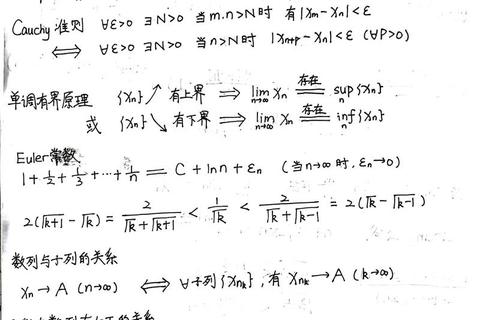 Cauchy准则 ∀ε>0 ∃N>0 当m.n>N时 有|xm-xn|<ε
⟺ ∀ε>0 ∃N>0 当n>N时 |xn+p-xn|<ε (∀P>0)
单调有界原理 {xn}↗ 有上界 ⟹ lim n→∞ xn 存在= sup n {xn}
或 {xn}↘ 有下界 ⟹ lim n→∞ xn 存在= inf n {xn}
Euler常数
1+1/2+1/3+⋯+1/n = C+lnn+εn (当n→∞时,εn→0)
2(√k+1-√k)=2/(√k+√k+1)<1/√k<2/(√k+√k-1)=2(√k-√k-1)
数列与子列的关系
xn→A (n→∞) ⟺ ∀子列{xnk},有 xnk→A (k→∞)